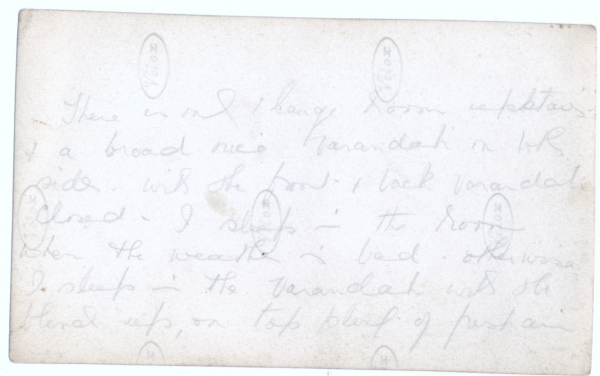 There is only 1 large Room upstairs
& a broad nice Varandah on both
sides. with the front & back Varandah
Closed. I sleep in the Room
when the weather is bad. otherwise
I sleep in the Varandah with the
blind up, on top plenty of fresh air
Velox
Velox
Velox
Velox
Velox